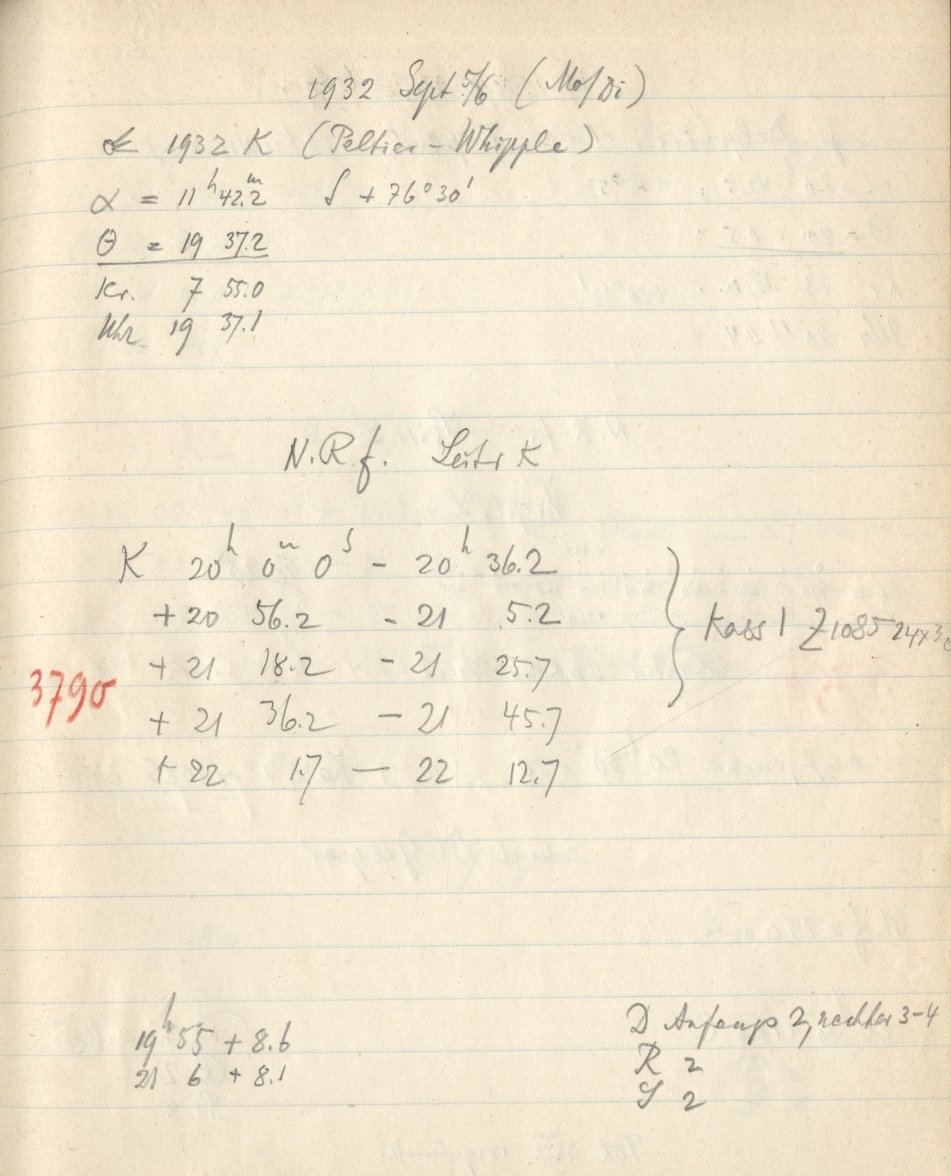 1932 Sept 5/6 (Mo/Di)
☄ 1932 K (Peltier-Whipple)
α = 11ʰ 42.2ᵐ δ + 76° 30'
θ = 19 37.2
Kr. 7 55.0
Uhr 19 37.1
N.R.f. Leitr K
K 20ʰ 0ᵐ 0ˢ - 20ʰ 36.2
+20 56.2 - 21 5.2
+ 21 18.2 - 21 25.7
+ 21 36.2 - 21 45.7
+ 22 1.7 — 22 12.7
Kass 1 Z 1085 24x30
3790
19ʰ 55 + 8.6
21 6 + 8.1
D Anfangs 2, nachher 3-4
R 2
S 2